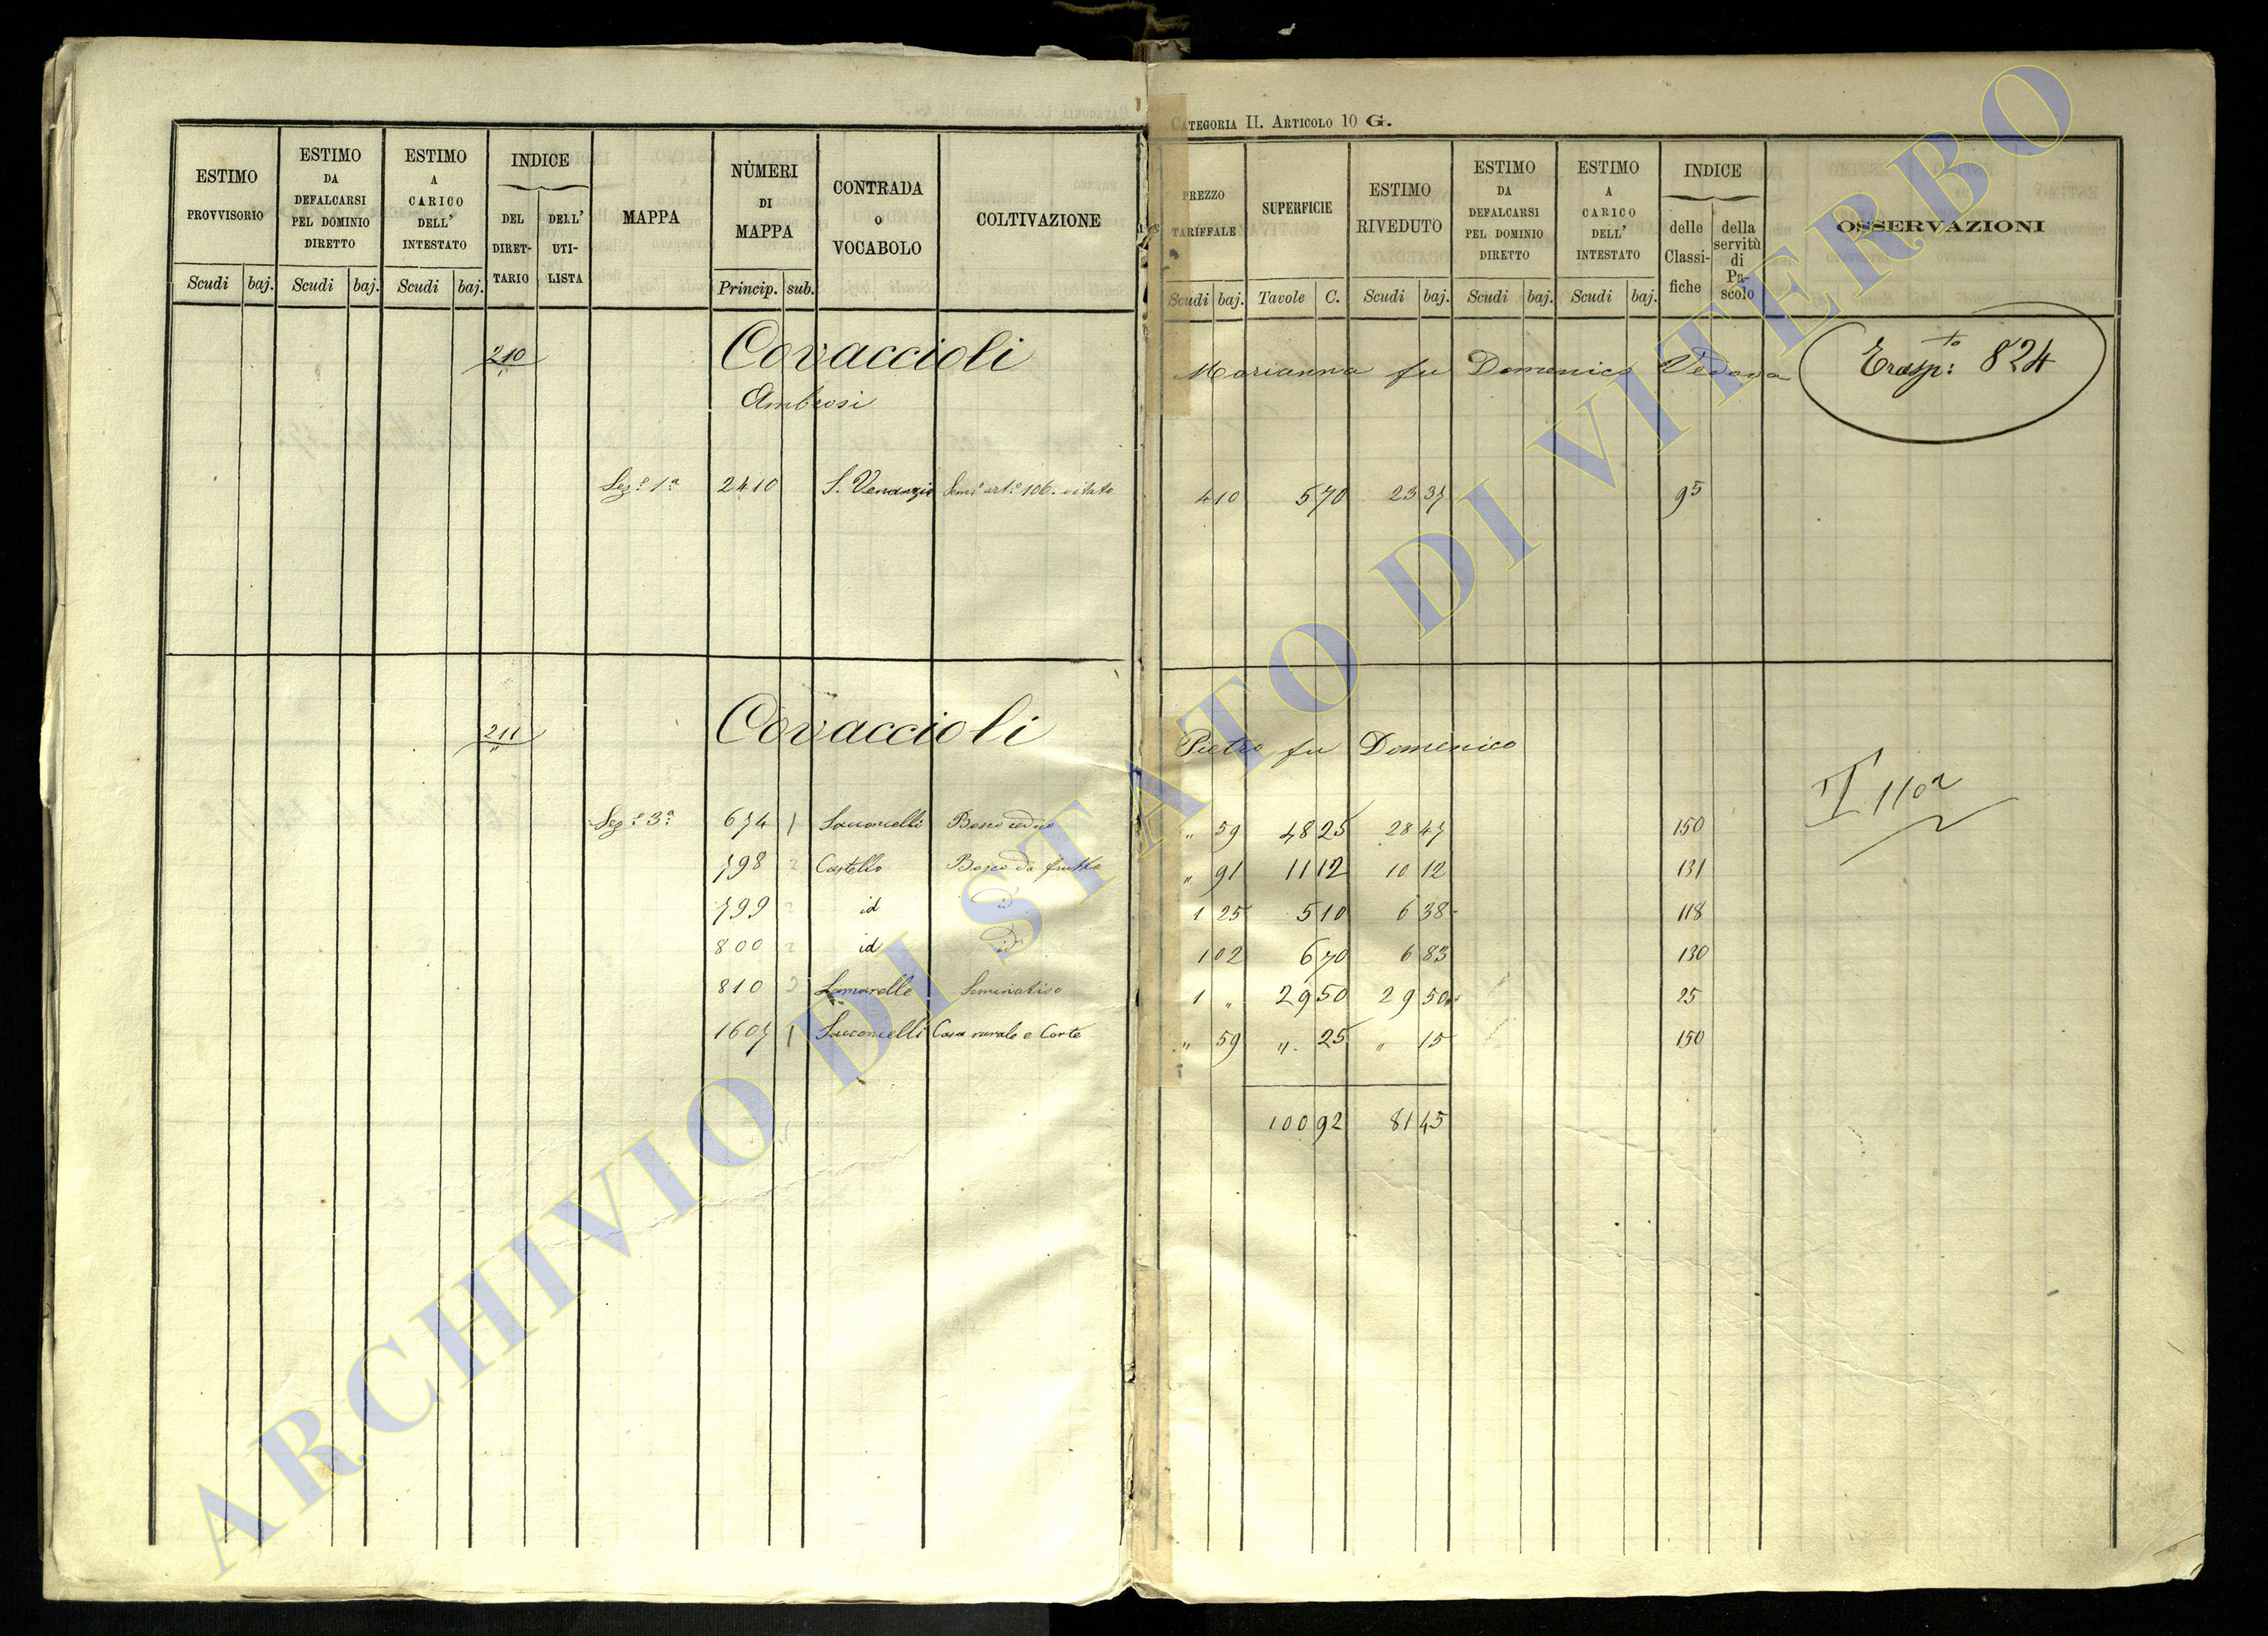 CATEGORIA II. ARTICOLO 10 G.
ESTIMO PROVVISORIO Scudi baj.
ESTIMO DA DEFALCARSI PEL DOMINIO DIRETTO Scudi baj.
ESTIMO A CARICO DELL' INTESTATO Scudi baj.
INDICE DEL DIRET-TARIO DELL' UTI-LISTA
MAPPA
NUMERI DI MAPPA Princip. sub.
CONTRADA O VOCABOLO
COLTIVAZIONE
PREZZO TARIFFALE Scudi baj.
SUPERFICIE Tavole C.
ESTIMO RIVEDUTO Scudi baj.
ESTIMO DA DEFALCARSI PEL DOMINIO DIRETTO Scudi baj.
ESTIMO A CARICO DELL' INTESTATO Scudi baj.
INDICE delle Classi-fiche della servitù di Pa-scolo
OSSERVAZIONI
210 Covaccioli Marianna fu Domenico Vedova Trasp:to 824
Ambrosi
Sez.e 1a 2410 S. Venanzio vitato 4 10 5 70 23 37 95
211 Covaccioli Pietro fu Domenico
II 110
Sez.e 3a 674 1 Bosco ceduo " 59 48 25 28 47 150
798 2 Castello Bosco da frutto " 91 11 12 10 12 131
799 2 id id 1 25 5 10 6 38 118
800 2 id id 1 02 6 70 6 83 130
810 Seminativo 1 " 29 50 29 50 25
1607 1 Casa rurale e Corte " 59 " 25 " 15 150
100 92 81 45
ARCHIVIO DI STATO DI VITERBO